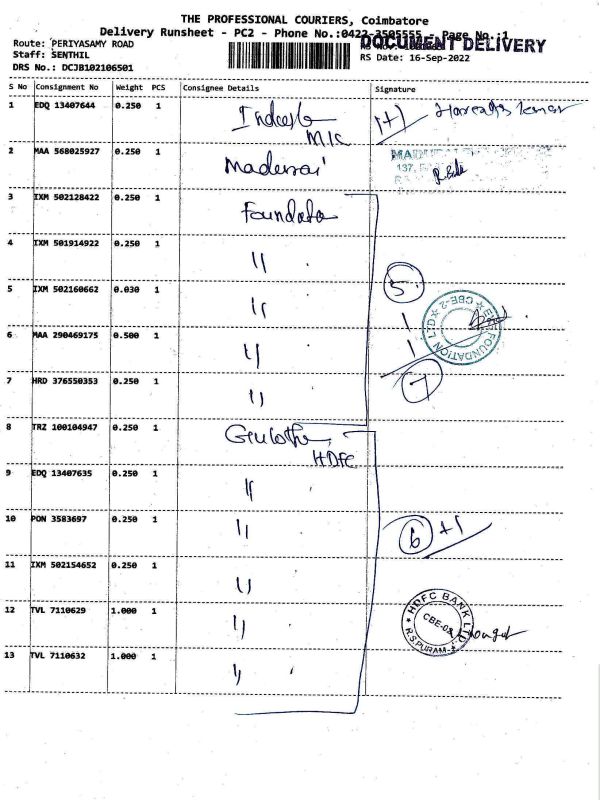 THE PROFESSIONAL COURIERS, Coimbatore
Delivery Runsheet - PC2 - Phone No.:0422-3505555 - Page No.:1
DOCUMENT DELIVERY
Route: PERIYASAMY ROAD
Staff: SENTHIL
RS Date: 16-Sep-2022
DRS No.: DCJB102106501
S No Consignment No Weight PCS Consignee Details Signature
1 EDQ 13407644 0.250 1
2 MAA 568025927 0.250 1
3 IXM 502128422 0.250 1
4 IXM 501914922 0.250 1 "
5 IXM 502160662 0.030 1 " 5
1
6 MAA 290469175 0.500 1 " 1
7 HRD 376550353 0.250 1 " 7
FOUNDATION CBE-2
8 TRZ 100104947 0.250 1 HDFC
9 EDQ 13407635 0.250 1 "
10 PON 3583697 0.250 1 " 6 +1
11 IXM 502154652 0.250 1 "
12 TVL 7110629 1.000 1 "
HDFC BANK LTD
CBE-02
R.S.PURAM
13 TVL 7110632 1.000 1 "